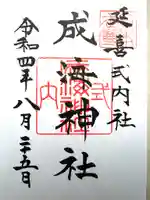 延喜式内社
成海神社
令和四年八月二十五日
式内